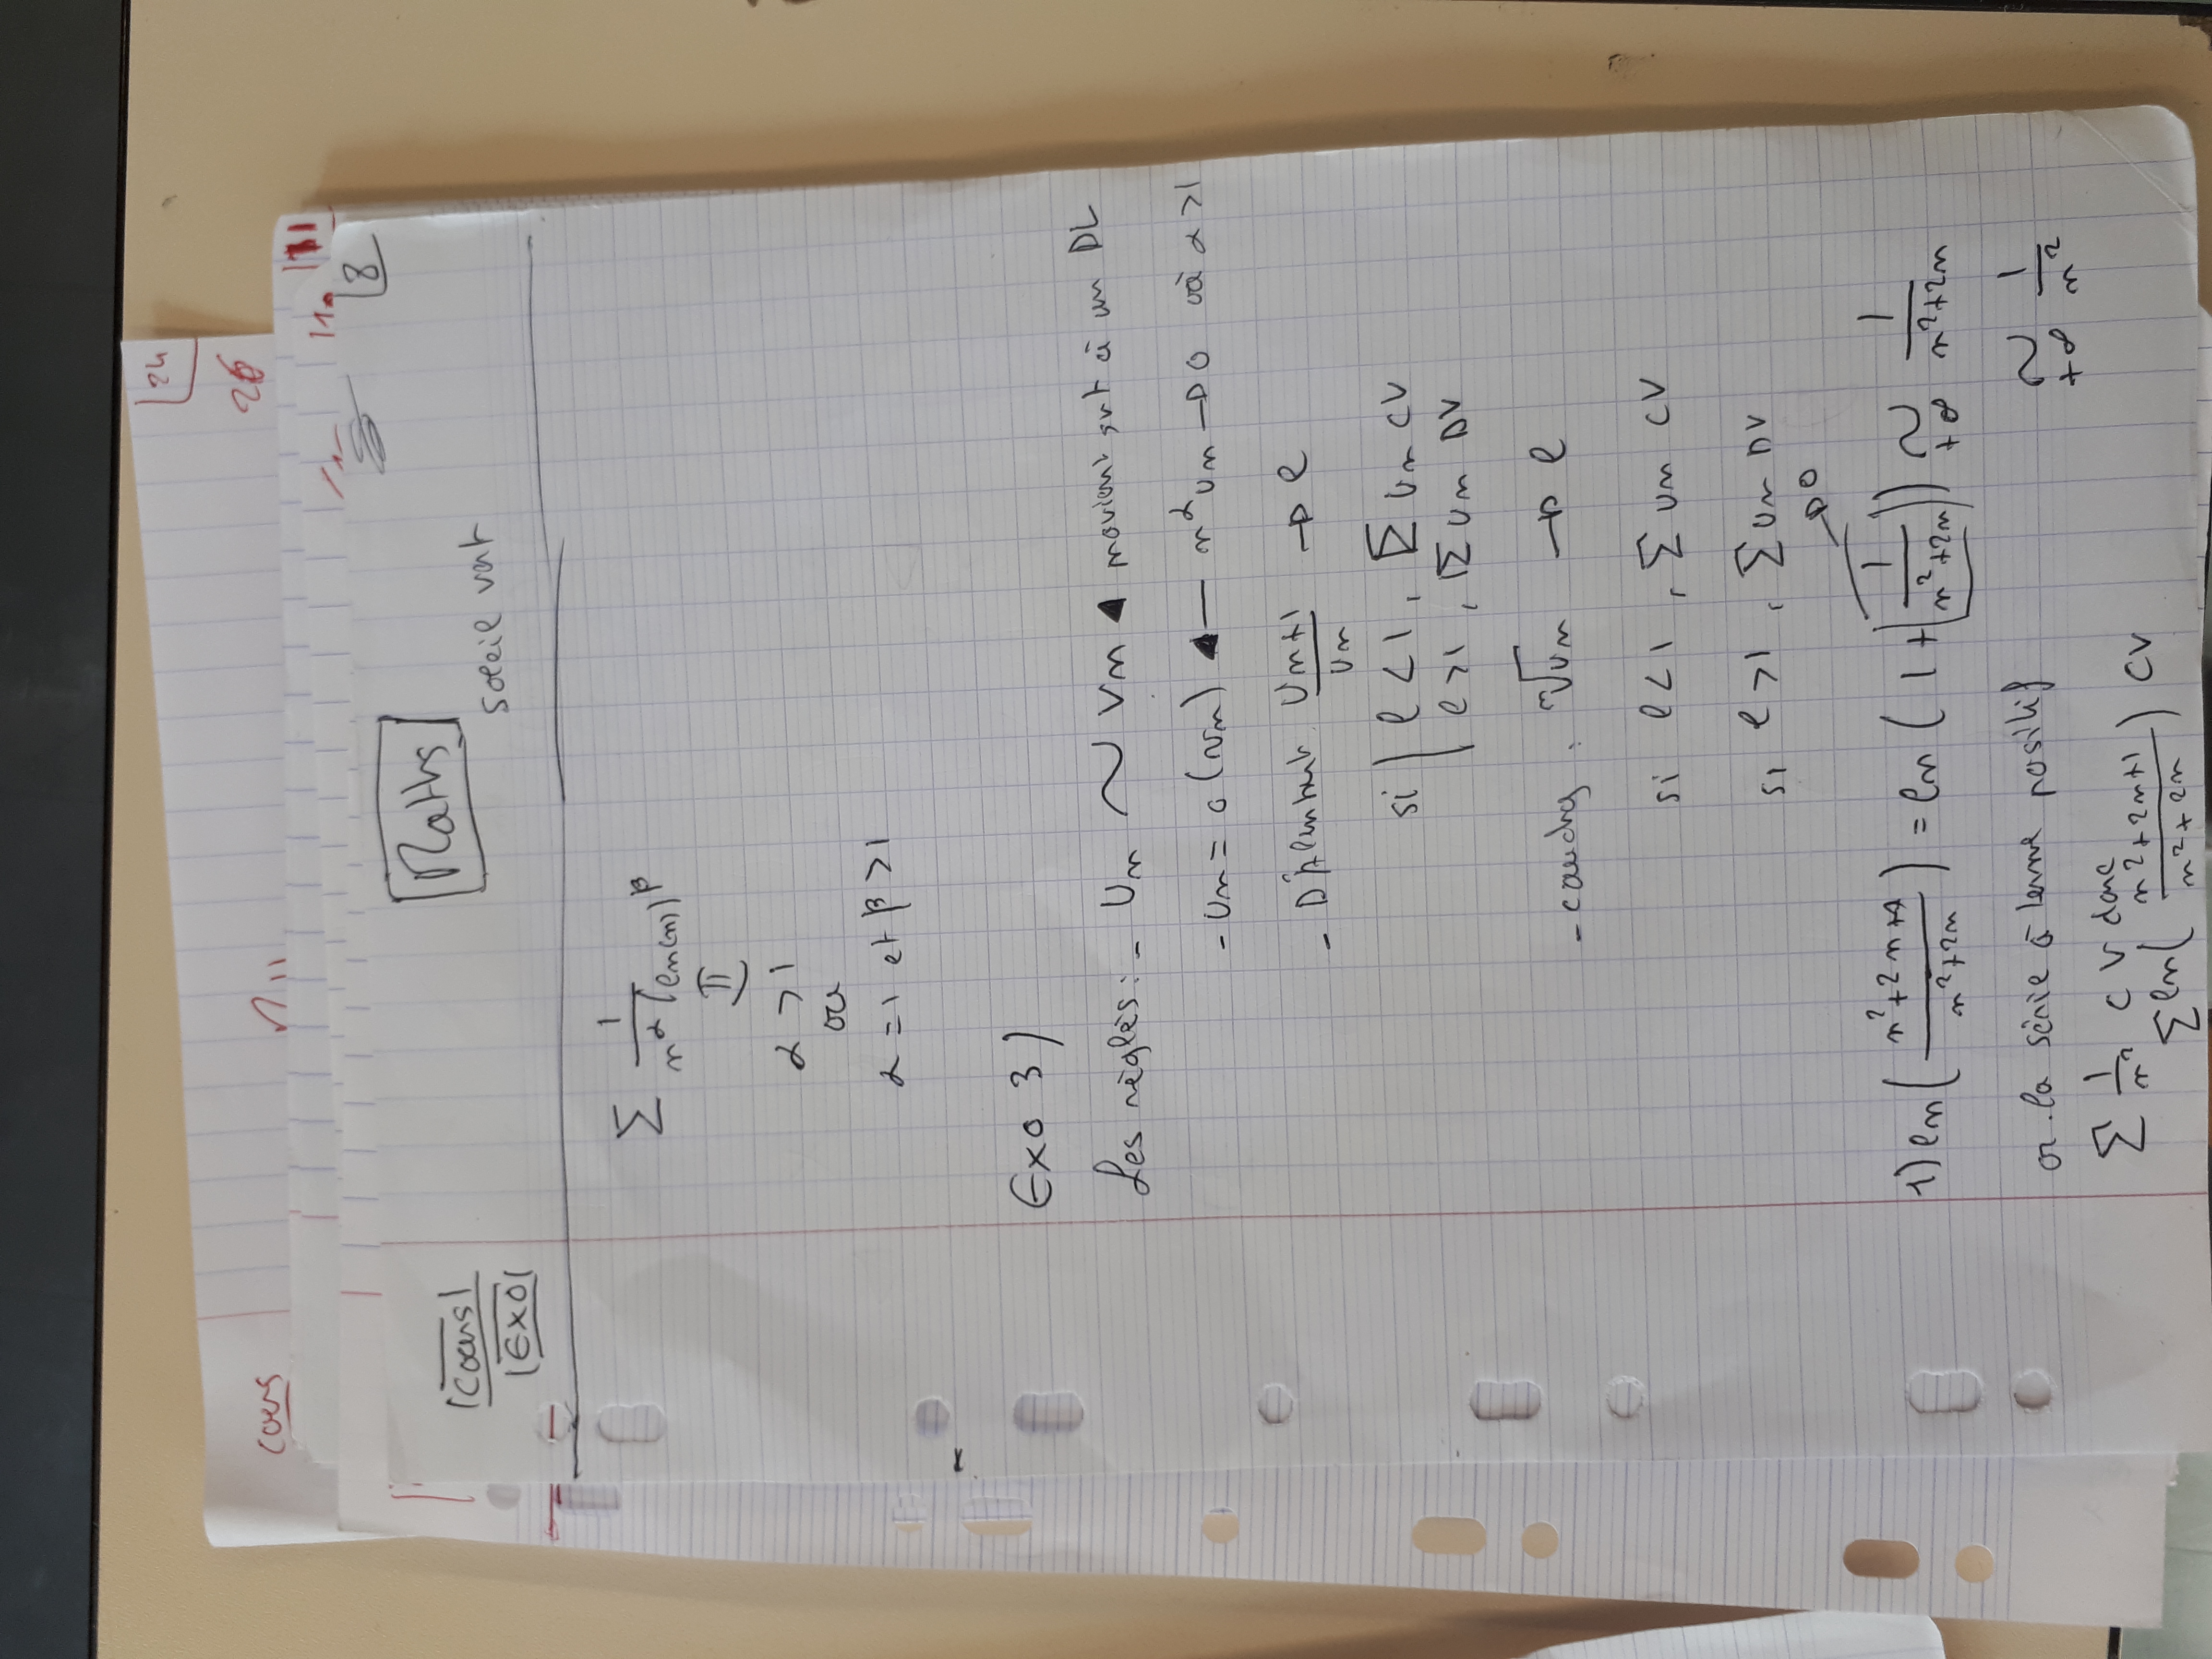 24
26
cours
11
8
Maths
Cours
Exo
soleil vert
∑ 1/(n^α (ln(n))^β)
α > 1
ou
α = 1 et β > 1
Exo 3)
Les règles : - Un ~ Vn ◀ à un DL
- Un = o(Vn) ◀— n^α Un → 0 où α > 1
- D'Alembert Un+1/Un → l
si | l < 1, ∑ Un CV
| l > 1, ∑ Un DV
- cauchy : ⁿ√Un → l
si l < 1, ∑ Un CV
si l > 1, ∑ Un DV
→ 0
1) ln( (n²+2n+1)/(n²+2n) ) = ln( 1 + (1/(n²+2n)) ) ~ +∞ 1/(n²+2n)
or la série à terme positif ~ +∞ 1/n²
∑ 1/n² CV donc
∑ ln( (n²+2n+1)/(n²+2n) ) CV